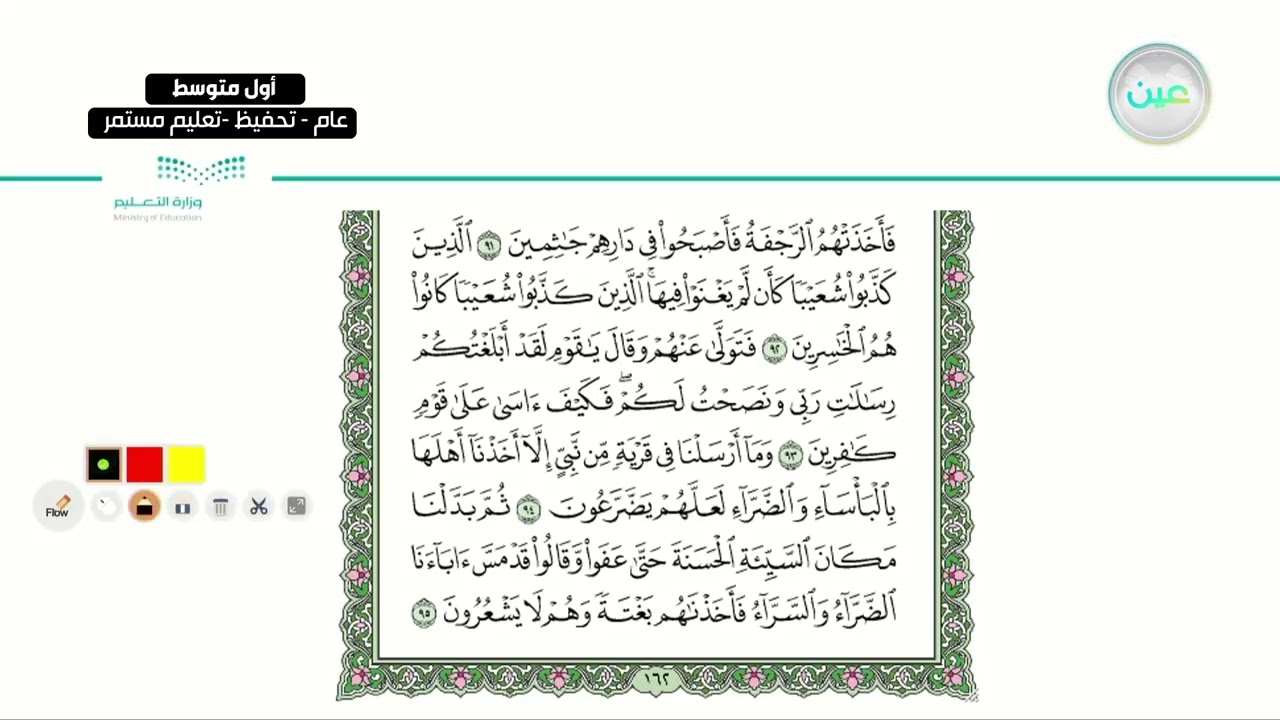 أول متوسط
عام - تحفيظ -تعليم مستمر
عين
وزارة التعـــليم
Ministry of Education
فَأَخَذَتْهُمُ ٱلرَّجْفَةُ فَأَصْبَحُوا۟ فِى دَارِهِمْ جَٰثِمِينَ ٩١ ٱلَّذِينَ
كَذَّبُوا۟ شُعَيْبًا كَأَن لَّمْ يَغْنَوْا۟ فِيهَا ۚ ٱلَّذِينَ كَذَّبُوا۟ شُعَيْبًا كَانُوا۟
هُمُ ٱلْخَٰسِرِينَ ٩٢ فَتَوَلَّىٰ عَنْهُمْ وَقَالَ يَٰقَوْمِ لَقَدْ أَبْلَغْتُكُمْ
رِسَٰلَٰتِ رَبِّى وَنَصَحْتُ لَكُمْ ۖ فَكَيْفَ ءَاسَىٰ عَلَىٰ قَوْمٍ
كَٰفِرِينَ ٩٣ وَمَآ أَرْسَلْنَا فِى قَرْيَةٍ مِّن نَّبِىٍّ إِلَّآ أَخَذْنَآ أَهْلَهَا
بِٱلْبَأْسَآءِ وَٱلضَّرَّآءِ لَعَلَّهُمْ يَضَّرَّعُونَ ٩٤ ثُمَّ بَدَّلْنَا
مَكَانَ ٱلسَّيِّئَةِ ٱلْحَسَنَةَ حَتَّىٰ عَفَوا۟ وَّقَالُوا۟ قَدْ مَسَّ ءَابَآءَنَا
ٱلضَّرَّآءُ وَٱلسَّرَّآءُ فَأَخَذْنَٰهُم بَغْتَةً وَهُمْ لَا يَشْعُرُونَ ٩٥
١٦٢
Flow